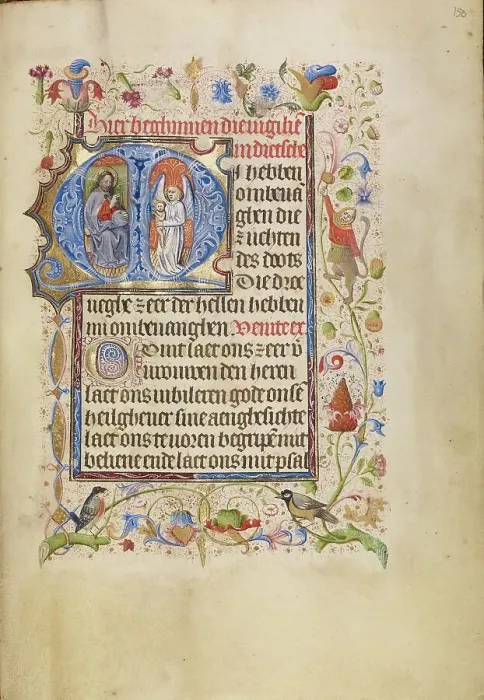 150
Hier beghinnen die vigiliē
in dietsche
M I hebben
ombeua
ghen die
zuchten
des doots
Die droe
ueghe zeer der hellen hebben
mi ombeuanghen Venite ex
Comt laet ons zeer v̄
urouwen den heren
laet ons iubileren gode onsē
heilgheuer sine aenghesichte
laet ons te uoren begripē mit
beliene ende laet ons mit psal